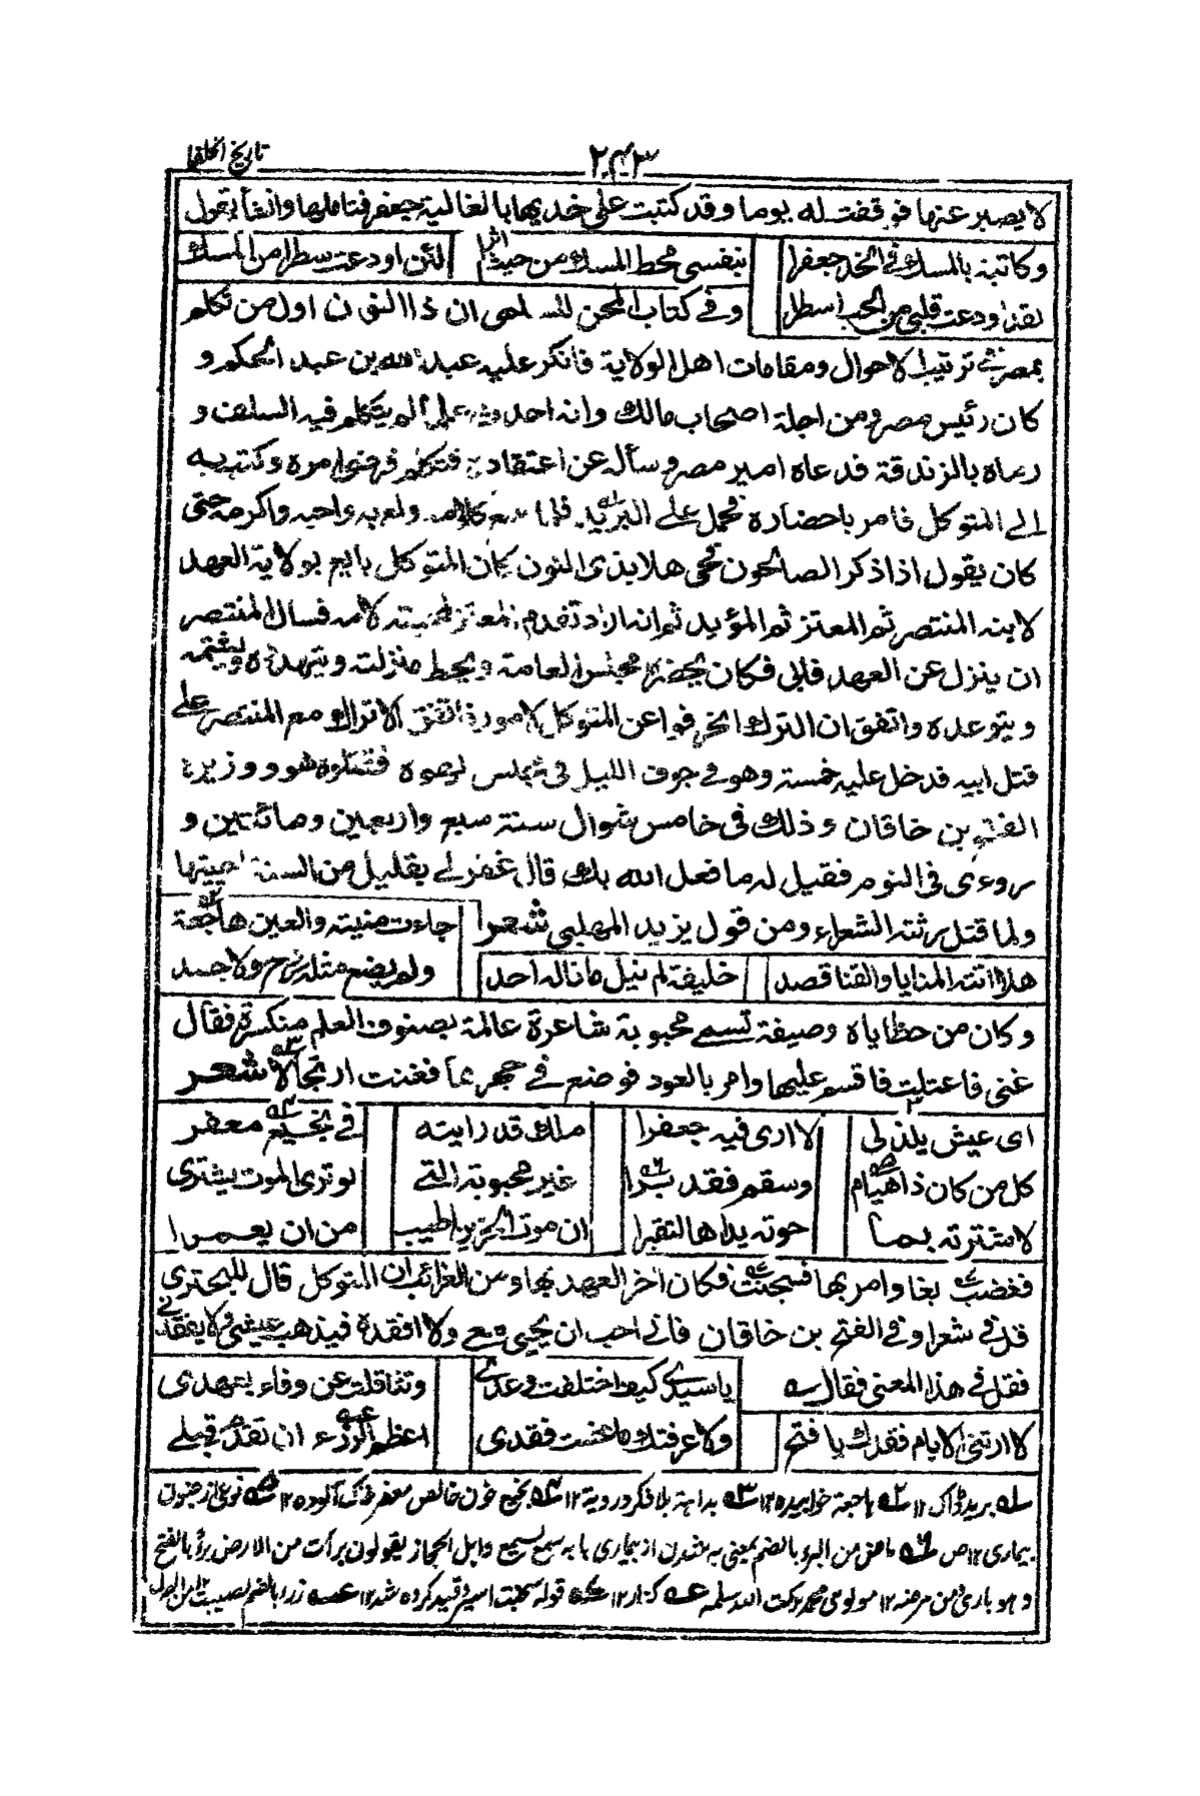 تاريخ الخلفا
٢٤٣
لا يصبر عنها فوقفت له يوما وقد كتبت على خديها بالغالية جعفر فتاملها وانشأ يقول
وكاتبة بالمسك فى الخد جعفرا بنفسى محط المسك من حيث اثرا لئن اودعت سطرا من المسك
لقد اودعت قلبى من الحب اسطرا وفى كتاب المحن للسلمى ان ذا النون اول من تكلم
بمصر فى ترتيب الاحوال ومقامات اهل الولاية فانكر عليه عبد الله بن عبد الحكم و
كان رئيس مصر ومن اجلة اصحاب مالك وانه احدث علما لم يتكلم فيه السلف و
رماه بالزندقة فدعاه امير مصر وسأله عن اعتقاده فتكلم فرضى امره وكتب به
الى المتوكل فامر باحضاره فحمل على البريد فلما سمع كلامه ولع به واحبه واكرمه حتى
كان يقول اذا ذكر الصالحون فحى هلا بذى النون كان المتوكل بايع بولاية العهد
لابنه المنتصر ثم المعتز ثم المؤيد ثم انه اراد تقديم المعتز لمحبته لامه فسال المنتصر
ان ينزل عن العهد فابى فكان يحضره مجلس العامة ويحط منزلته ويتهدده ويشتمه
ويتوعده واتفق ان الترك انحرفوا عن المتوكل لامور فاتفق الاتراك مع المنتصر على
قتل ابيه فدخل عليه خمسة وهو فى جوف الليل فى مجلس لهوه فقتلوه هو ووزيره
الفتح بن خاقان وذلك فى خامس شوال سنة سبع واربعين ومائتين و
روءى فى النوم فقيل له ما فعل الله بك قال غفر لى بقليل من السنة احييتها
ولما قتل رثته الشعراء ومن قول يزيد المهلبى شعرا جاءت منيته والعين هاجعة
هلا اتته المنايا والقنا قصد خليفة لم ينل ما ناله احد ولم يضع مثله روح ولا جسد
وكان من حظاياه وصيفة تسمى محبوبة شاعرة عالمة بصنوف العلم منكسرة فقال
غنى فاعتلت فاقسم عليها وامر بالعود فوضع فى حجرها فغنت ارتجالا شعر
اى عيش يلذ لى لا ارى فيه جعفرا ملك قد رايته فى نجيع معفر
كل من كان ذا هيام وسقم فقد برا غير محبوبة التى لو ترى الموت يشترى
لاشترته بما حوته يداها لتقبرا ان موت الحزين اطيب من ان يعمرا
فغضب بغا وامر بها فسجنت فكان اخر العهد بها ومن الغرائب ان المتوكل قال للبحترى
قل فى شعرا وفى الفتح بن خاقان فانى احب ان يحيى معى ولا افقده فيذهب عيشى ولا يفقدنى
فقل فى هذا المعنى فقال يا سيدى كيف اختلفت وعدى وتثاقلت عن وفاء بعهدى
لا ارتنى الايام فقدك يا فتح ولا عرفتك ما عشت فقدى اعظم الرزء ان تقدم قبلى
بريد ڈاک ١٢ هاجعة خوابيده ١٢ بداهة بلا فكر وروية ١٢ نجيع خون خالص معفر خاک آلوده ١٢ نوعى از جنون
بيمارى ١٢ ص ماض من البرء بالضم بمعنى به شدن از بيمارى بابه سمع يسمع واهل الحجاز يقولون برأت من المرض برأ بالفتح
وهو بارئ من مرضه ١٢ مولوى محمد بركت الله سلمه قوله سجنت اسير وقيد كرده شد ١٢ رزء بالضم مصيبت ١٢